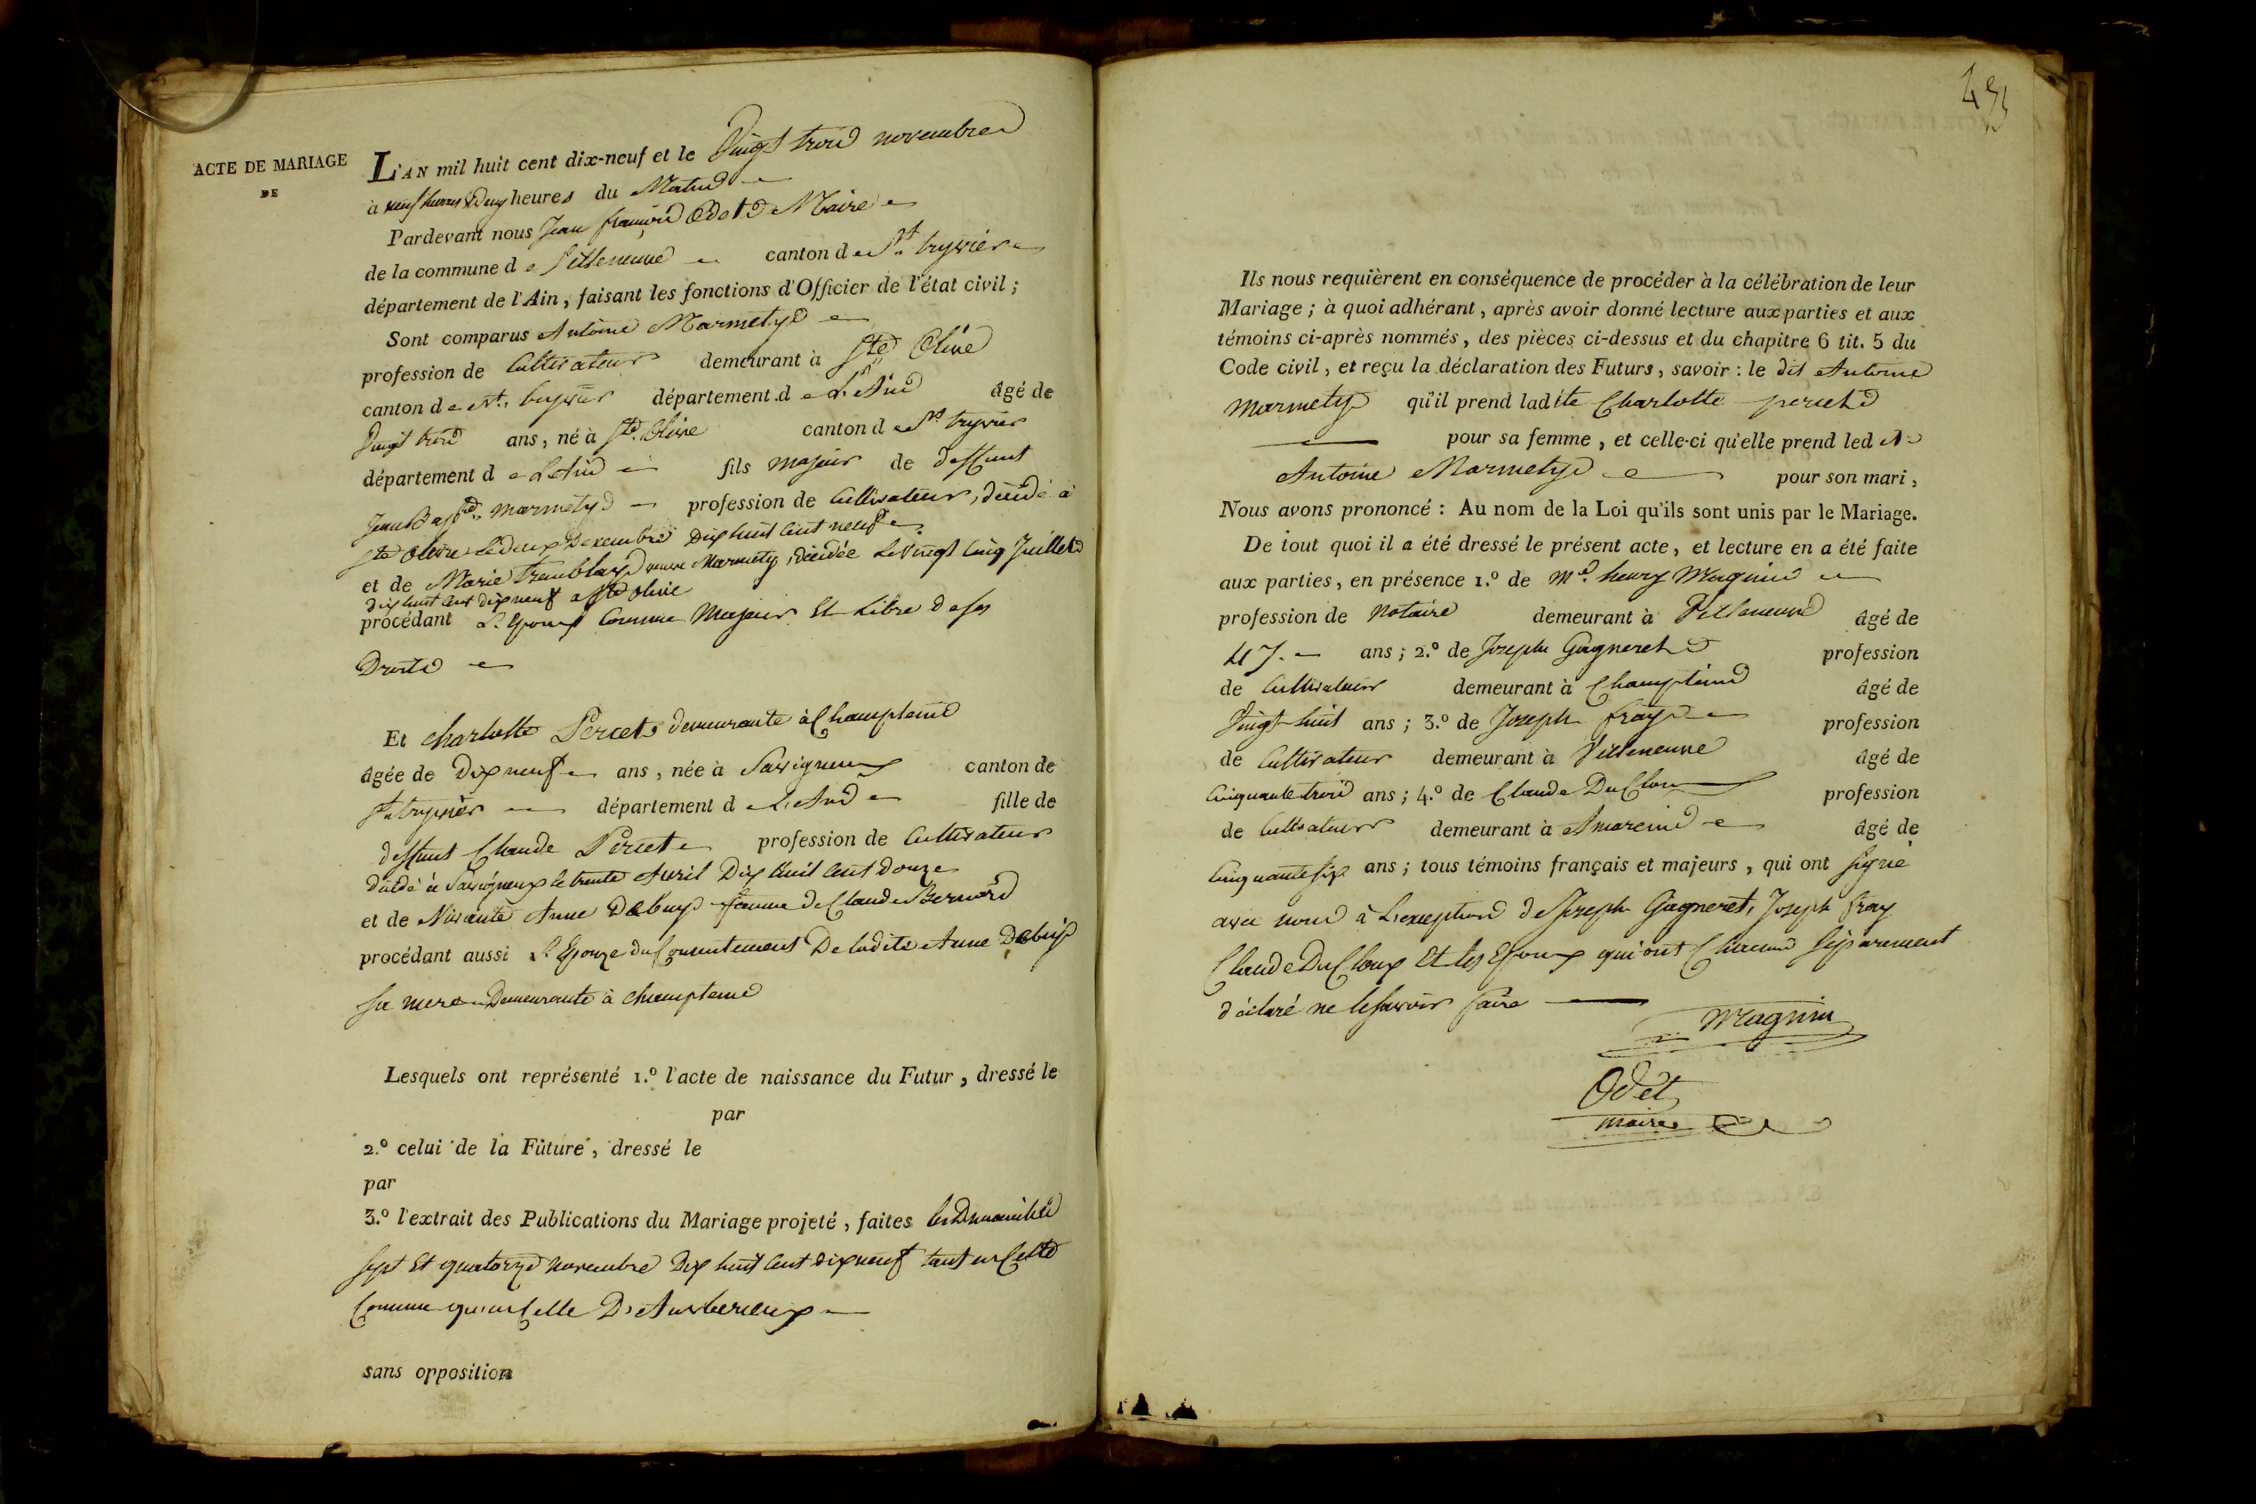 ACTE DE MARIAGE
DE
L'AN mil huit cent dix-neuf et le Vingt trois novembre
à neuf heures du Matin
Pardevant nous Jean françois Odet Maire
de la commune de Villeneuve canton de St. tryvier
département de l'Ain, faisant les fonctions d'Officier de l'état civil;
Sont comparus Antoine Marmety
profession de Cultivateur demeurant à Ste Olive
canton de St. tryvier département de L'Ain âgé de
Vingt trois ans, né à Ste Olive canton de St tryvier
département de L'Ain fils majeur de deffunt
Jean Bapte. Marmety profession de Cultivateur, décédé à
Ste Olive le deux Décembre Dix huit cent neuf
et de Marie Tremblay veuve Marmety, décédée Le Vingt Cinq Juillet
dix huit cent dix neuf a Ste Olive
procédant L'Epoux Comme Majeur Et Libre de ses
Droits
Et Charlotte Percet demeurante à Champteins
âgée de Dix neuf ans, née à Savigneux canton de
St tryvier département de L'Ain fille de
deffunt Claude Percet profession de Cultivateur
décédé à Savigneux le trente Avril Dix huit Cent Douze
et de Vivante Anne Debuy femme de Claude Bernard
procédant aussi L'Epouze du Consentement De ladite Anne Debuy
sa mere Demeurante à champteins
Lesquels ont représenté 1.º l'acte de naissance du Futur, dressé le
par
2.º celui de la Future, dressé le
par
3.º l'extrait des Publications du Mariage projeté, faites les Dimanches
sept Et quatorze novembre Dix huit Cent dix neuf tant en Cette
Commune qu'en Celle D'Amberieux
sans opposition
Ils nous requièrent en conséquence de procéder à la célébration de leur
Mariage; à quoi adhérant, après avoir donné lecture aux parties et aux
témoins ci-après nommés, des pièces ci-dessus et du chapitre 6 tit. 5 du
Code civil, et reçu la déclaration des Futurs, savoir: le dit Antoine
Marmety qu'il prend ladite Charlotte percet
pour sa femme, et celle-ci qu'elle prend led
Antoine Marmety pour son mari,
Nous avons prononcé: Au nom de la Loi qu'ils sont unis par le Mariage.
De tout quoi il a été dressé le présent acte, et lecture en a été faite
aux parties, en présence 1.º de Me. henry Magnin
profession de Notaire demeurant à Villeneuve âgé de
47. ans; 2.º de Joseph Gagneret profession
de Cultivateur demeurant à Champteins âgé de
Vingt huit ans; 3.º de Joseph fray profession
de Cultivateur demeurant à Villeneuve âgé de
Cinquante trois ans; 4.º de Claude DuCloux profession
de Cultivateur demeurant à Amareins âgé de
Cinquante six ans; tous témoins français et majeurs, qui ont signé
avec nous à L'exception de Joseph Gagneret, Joseph fray
Claude DuCloux Et les Epoux qui ont Chacuns séparement
déclaré ne le savoir faire
Magnin
Odet
maire